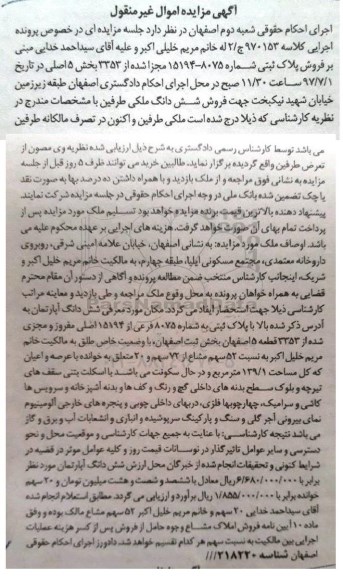 آگهی مزایده اموال غیر منقول
اجرای احکام حقوقی شعبه دوم اصفهان در نظر دارد جلسه مزایده ای در خصوص پرونده
اجرایی کلاسه ۹۷۰۱۵۳ ج/۲ له خانم مریم خلیلی اکبر و علیه آقای سیداحمد خدایی مبنی
بر فروش پلاک ثبتی شماره ۸۰۷۵-۱۵۱۹۴ مجزا شده از ۳۳۵۳ بخش ۵ اصلی در تاریخ
۹۷/۷/۱ ساعت ۱۱/۳۰ صبح در محل اجرای احکام دادگستری اصفهان طبقه زیرزمین
خیابان شهید نیکبخت جهت فروش شش دانگ ملکی طرفین با مشخصات مندرج در
نظریه کارشناسی که ذیلا درج شده است ملکی طرفین و اکنون در تصرف مالکانه طرفین
می باشد توسط کارشناس رسمی دادگستری به شرح ذیل ارزیابی شده نظریه وی مصون از
تعرض طرفین واقع گردیده برگزار نماید. طالبین خرید می توانند ظرف ۵ روز قبل از جلسه
مزایده به نشانی فوق مراجعه و از ملک بازدید و با همراه داشتن ده درصد بها به صورت نقد
یا چک تضمین شده بانک ملی در وجه اجرای احکام حقوقی در جلسه مزایده شرکت نمایند.
پیشنهاد دهنده بالاترین قیمت برنده مزایده خواهد بود تسلیم ملک مورد مزایده پس از
پرداخت تمام بهای آن صورت خواهد گرفت. هزینه های اجرایی بر عهده محکوم علیه می
باشد. اوصاف ملک مورد مزایده: به نشانی اصفهان، خیابان علامه امینی شرقی، روبروی
داروخانه معتمدی، مجتمع مسکونی ایلیا، طبقه چهارم، به مالکیت خانم مریم خلیل اکبر و
شریک، اینجانب کارشناس منتخب ضمن مطالعه پرونده و آگاهی از دستور آن مقام محترم
قضایی به همراه خواهان پرونده به محل وقوع ملک مراجعه و طی بازدید و معاینه مراتب
کارشناسی ذیلا جهت استحضار ایفاد می گردد. مکان مورد معرفی شش دانگ آپارتمان به
آدرس ذکر شده بالا با پلاک ثبتی به شماره ۸۰۷۵ فرعی از ۱۵۱۹۴ اصلی مفروز و مجزی
شده از ۳۳۵۳ قطعه ۵ اصفهان بخش ثبت اصفهان، با وضعیت خاص طلق به مالکیت خانم
مریم خلیل اکبر به نسبت ۵۲ سهم مشاع از ۷۲ سهم و ۲۰ متعلق به خوانده با عرصه و اعیان
که کل مساحت ۱۳۹/۱ مترمربع و در حال سکونت می باشد. با اسکلت بتنی سقف های
تیرچه و بلوک سطح بدنه های داخلی گچ و رنگ و کف ها و بدنه آشپزخانه و سرویس ها
کاشی و سرامیک، چهارچوبها فلزی، دربهای داخلی چوبی و پنجره های خارجی آلومینیوم
نمای بیرونی آجر گلی و سنگ و پارکینگ سرپوشیده و انباری و انشعابات آب و برق و گاز
می باشد نتیجه کارشناسی: با عنایت به جمیع جهات کارشناسی و موقعیت محل و نحو
دسترسی و سایر عوامل تاثیرگذار در نوسانات قیمت روز و کلیه عوامل موثر در قضیه در
شرایط کنونی و تحقیقات انجام شده از خبرگان محل ارزش شش دانگ آپارتمان مورد نظر
برابر با ۶/۶۸۰/۰۰۰/۰۰۰ ریال معادل با ششصد و شصت و هشت میلیون تومان و ۲۰ سهم
خوانده برابر با ۱/۸۵۵/۰۰۰/۰۰۰ ریال برآورد و ارزیابی می گردد. مطابق استعلام انجام شده
آقای سیداحمد خدایی ۲۰ سهم و خانم مریم خلیل اکبر ۵۲ سهم مشاع مالک بوده و وفق
ماده ۱۰ آیین نامه فروش املاک مشاع وجوه حاصل از فروش پس از کسر هزینه عملیات
اجرایی بین مالکیت به نسبت سهم هر کدام تقسیم خواهد شد. دادورز اجرای احکام حقوقی
اصفهان شناسه ۲۱۸۲۲۰///